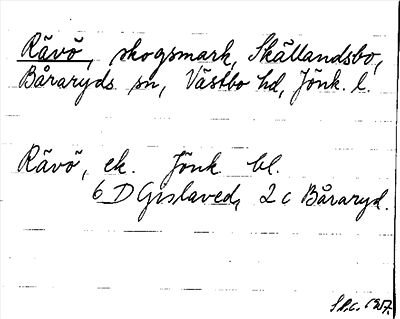 Rävö, skogsmark, Skällandsbo,
Båraryds sn, Västbo hd, Jönk. l.
Rävö, ek. Jönk. bl.
6 D Gislaved, 2 c Båraryd.